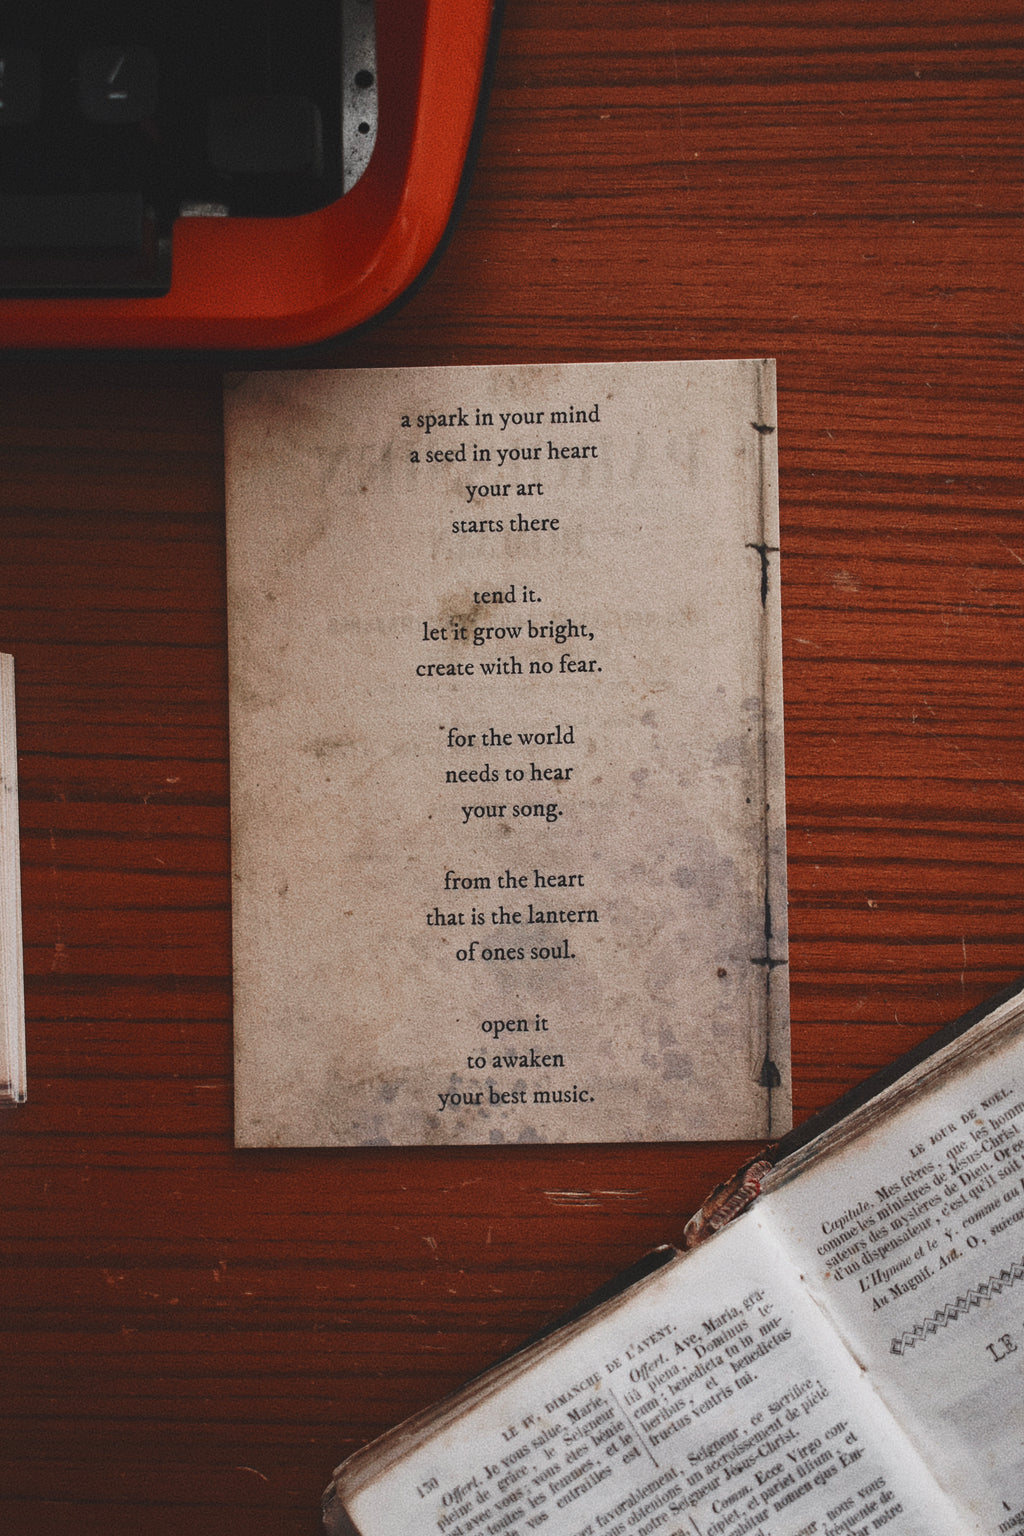 a spark in your mind
a seed in your heart
your art
starts there
tend it.
let it grow bright,
create with no fear.
for the world
needs to hear
your song.
from the heart
that is the lantern
of ones soul.
open it
to awaken
your best music.
LE JOUR DE NOEL.
Capitule. Mes frères, que les homm
comme les ministres de Jésus-Christ
sateurs des mystères de Dieu. Or ce
d'un dispensateur, c'est qu'il soit
L'Hymne et le ℣. comme au
Au Magnif. Ant. O, suivan
LE
150
LE IV. DIMANCHE DE L'AVENT.
Offert. Je vous salue, Marie,
pleine de grâce, le Seigneur
est avec vous; vous êtes bénie
toutes les femmes, et le
vos entrailles est
Offert. Ave, Maria, grâ-
tiâ plena, Dominus te-
cum; benedicta tu in mu-
lieribus, et benedictus
fructus ventris tui.
favorablement, Seigneur, ce sacrifice,
obtenions un accroissement de piété
notre Seigneur Jésus-Christ.
Comm. Ecce Virgo con-
cipiet, et pariet filium, et
nomen ejus Em-
nous vous
notre